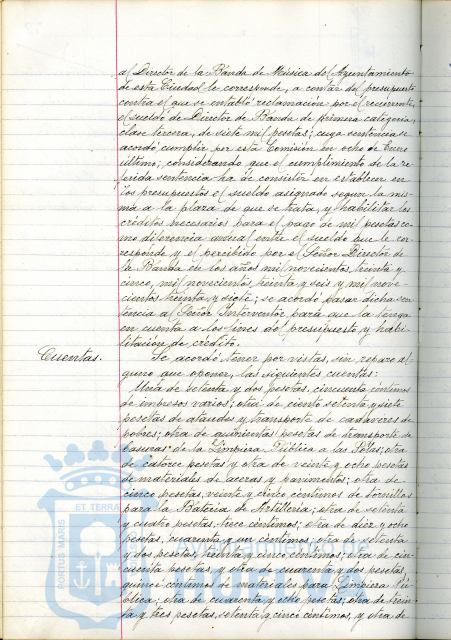 al Director de la Banda de Música del Ayuntamiento
de esta Ciudad le corresponde, a contar del presupuesto
contra el que se entabló reclamación por el recurrente,
el sueldo de Director de Banda de primera categoría,
clase tercera, de siete mil pesetas; cuya sentencia se
acordó cumplir por esta Comisión en ocho de Enero
último; considerando que el cumplimiento de la re-
ferida sentencia ha de consistir en establecer en
los presupuestos el sueldo asignado según la mis-
ma a la plaza de que se trata, y habilitar los
créditos necesarios para el pago de mil pesetas co-
mo diferencia anual entre el sueldo que le cor-
responde y el percibido por el Señor Director de
la Banda en los años mil novecientos treinta y
cinco, mil novecientos treinta y seis y mil nove-
cientos treinta y siete; se acordó pasar dicha sen-
tencia al Señor Interventor para que la tenga
en cuenta a los fines del presupuesto y habi-
litación de crédito.
Cuentas. Se acordó tener por vistas, sin reparo al-
guno que oponer, las siguientes cuentas:
Una de setenta y dos pesetas, cincuenta céntimos
de impresos varios; otra de ciento setenta y siete
pesetas de ataudes y transporte de cadáveres de
pobres; otra de quinientas pesetas de transporte de
basuras de la Limpieza Pública a las ; otra
de catorce pesetas y otra de veinte y ocho pesetas
de materiales de aceras y pavimentos; otra de
cinco pesetas, veinte y cinco céntimos de tornillos
para la Batería de Artillería; otra de setenta
y cuatro pesetas, trece céntimos; otra de diez y ocho
pesetas, cuarenta y un céntimos, otra de setenta
y dos pesetas, treinta y cinco céntimos; otra de cin-
cuenta pesetas, y otra de cuarenta y dos pesetas,
quince céntimos de materiales para Limpieza Pú-
blica; otra de cuarenta y ocho pesetas; otra de trein-
ta y tres pesetas, setenta y cinco céntimos, y otra de
PORTUS MARIS
ET TERRA